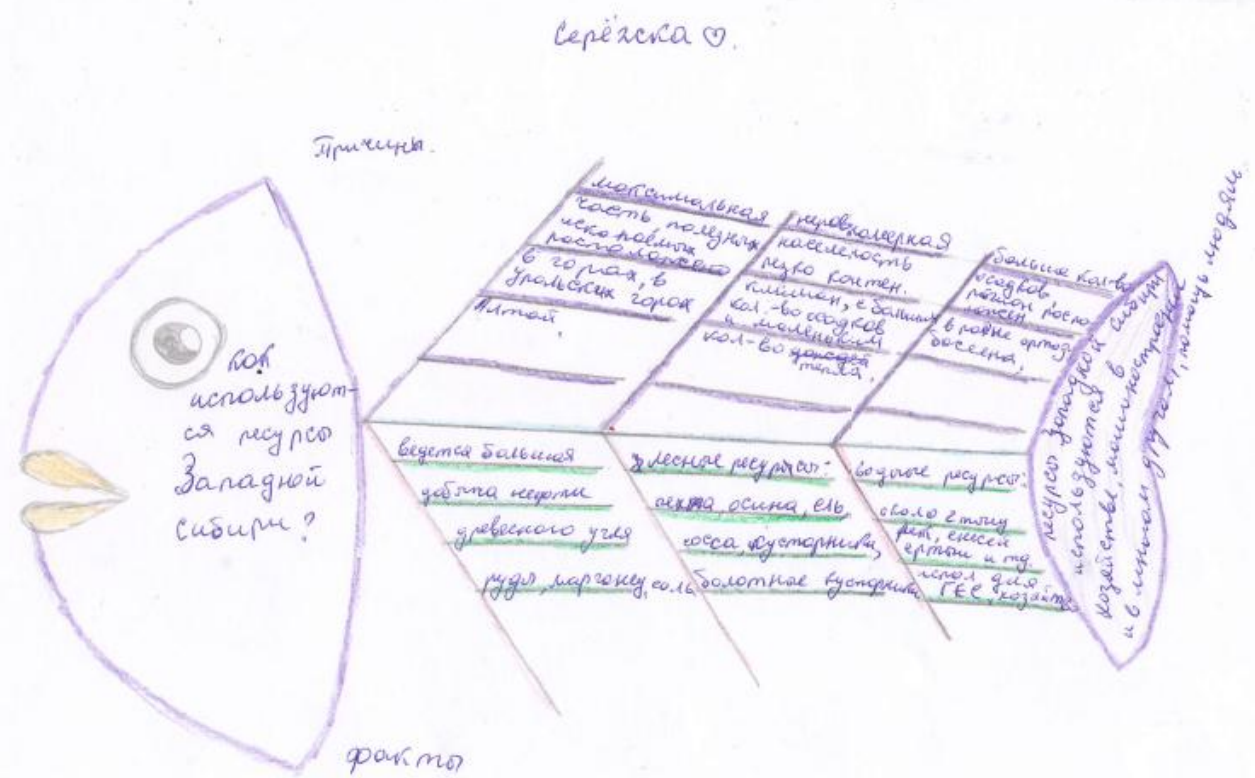 Серёжка ♡.
Причины.
как
используют-
ся ресурсы
Западной
сибири?
максимальная
часть полезных
ископаемых
в горах, в
Уральских горах
Алтай.
неравномерная
населеность
резко контен.
кол-во осадков
и маленьким
кол-во
тепла.
большое кол-во
осадков,
босеена,
ведется большая
добыча нефти
древесного угля
руды, марганец, соль
лесные ресурсы:
пехта, осина, ель,
сосса, кусторники,
болотные кусторники
водные ресурсы:
около 2 тысч
рек, енисей
ертыш и тд.
испол. для
ГЕС, хозяйст
ресурсы Западной сибири
используются в
хозяйстве, машиностроение
и в многом другом, помощь людям.
факты